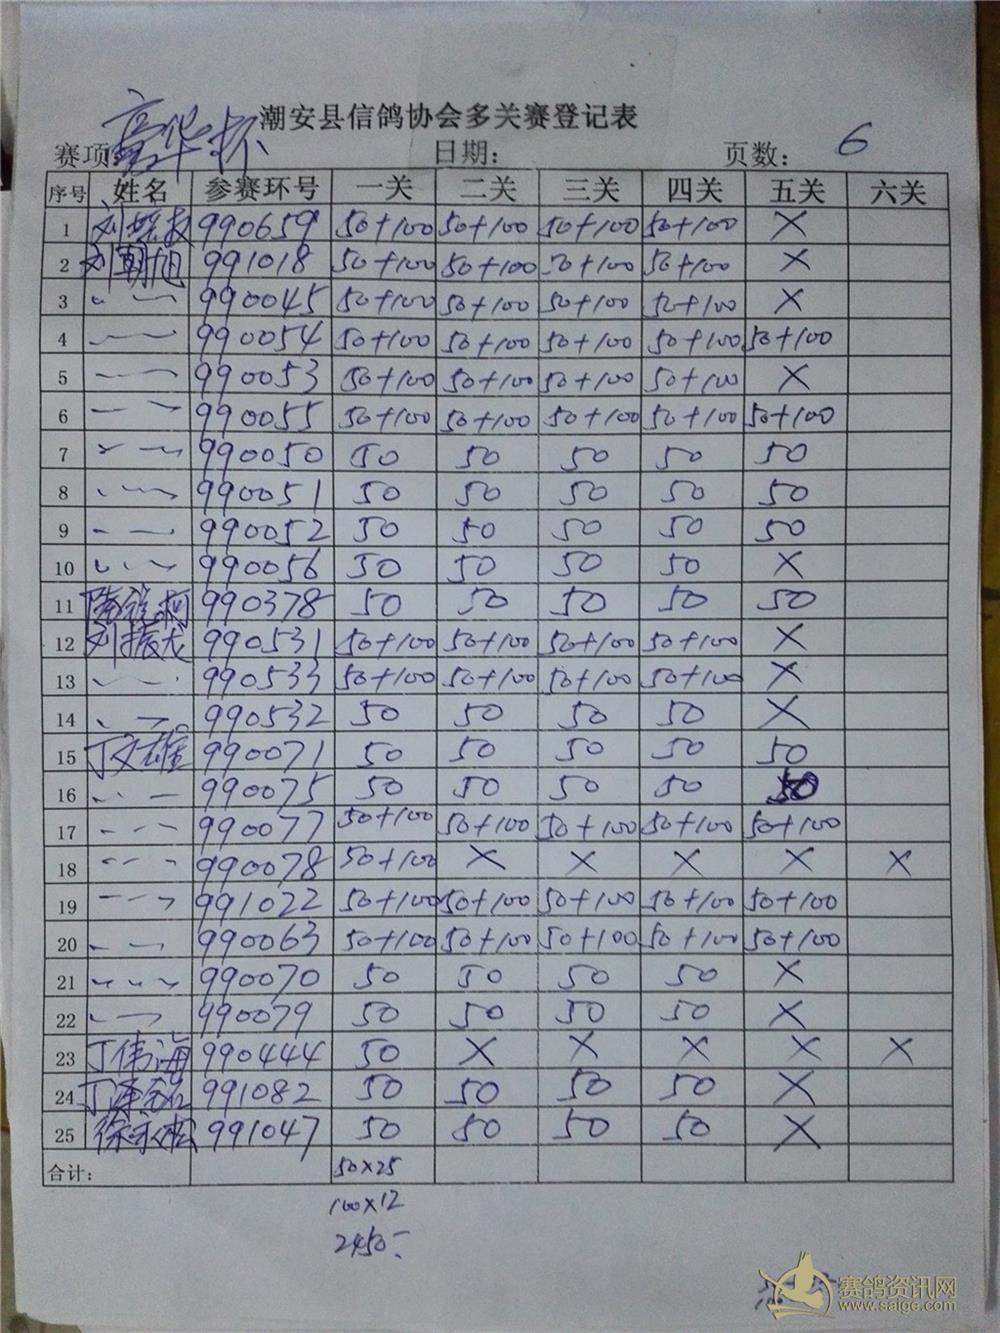 潮安县信鸽协会多关赛登记表
赛项: 高华杯 日期: 页数: 6
序号 姓名 参赛环号 一关 二关 三关 四关 五关 六关
1 990659 50+100 50+100 50+100 50+100 ×
2 刘朝旭 991018 50+100 50+100 50+100 50+100 ×
3 990045 50+100 50+100 50+100 50+100 ×
4 990054 50+100 50+100 50+100 50+100 50+100
5 990053 50+100 50+100 50+100 50+100 ×
6 990055 50+100 50+100 50+100 50+100 50+100
7 990050 50 50 50 50 50
8 990051 50 50 50 50 50
9 990052 50 50 50 50 50
10 990056 50 50 50 50 ×
11 990378 50 50 50 50 50
12 刘振龙 990531 50+100 50+100 50+100 50+100 ×
13 990533 50+100 50+100 50+100 50+100 ×
14 990532 50 50 50 50 ×
15 丁文雄 990071 50 50 50 50 50
16 990075 50 50 50 50 50
17 990077 50+100 50+100 50+100 50+100 50+100
18 990078 50+100 × × × × ×
19 991022 50+100 50+100 50+100 50+100 50+100
20 990063 50+100 50+100 50+100 50+100 50+100
21 990070 50 50 50 50 ×
22 990079 50 50 50 50 ×
23 丁伟海 990444 50 × × × × ×
24 991082 50 50 50 50 ×
25 徐永松 991047 50 50 50 50 ×
合计: 50×25
100×12
2450
赛鸽资讯网
www.saigc.com